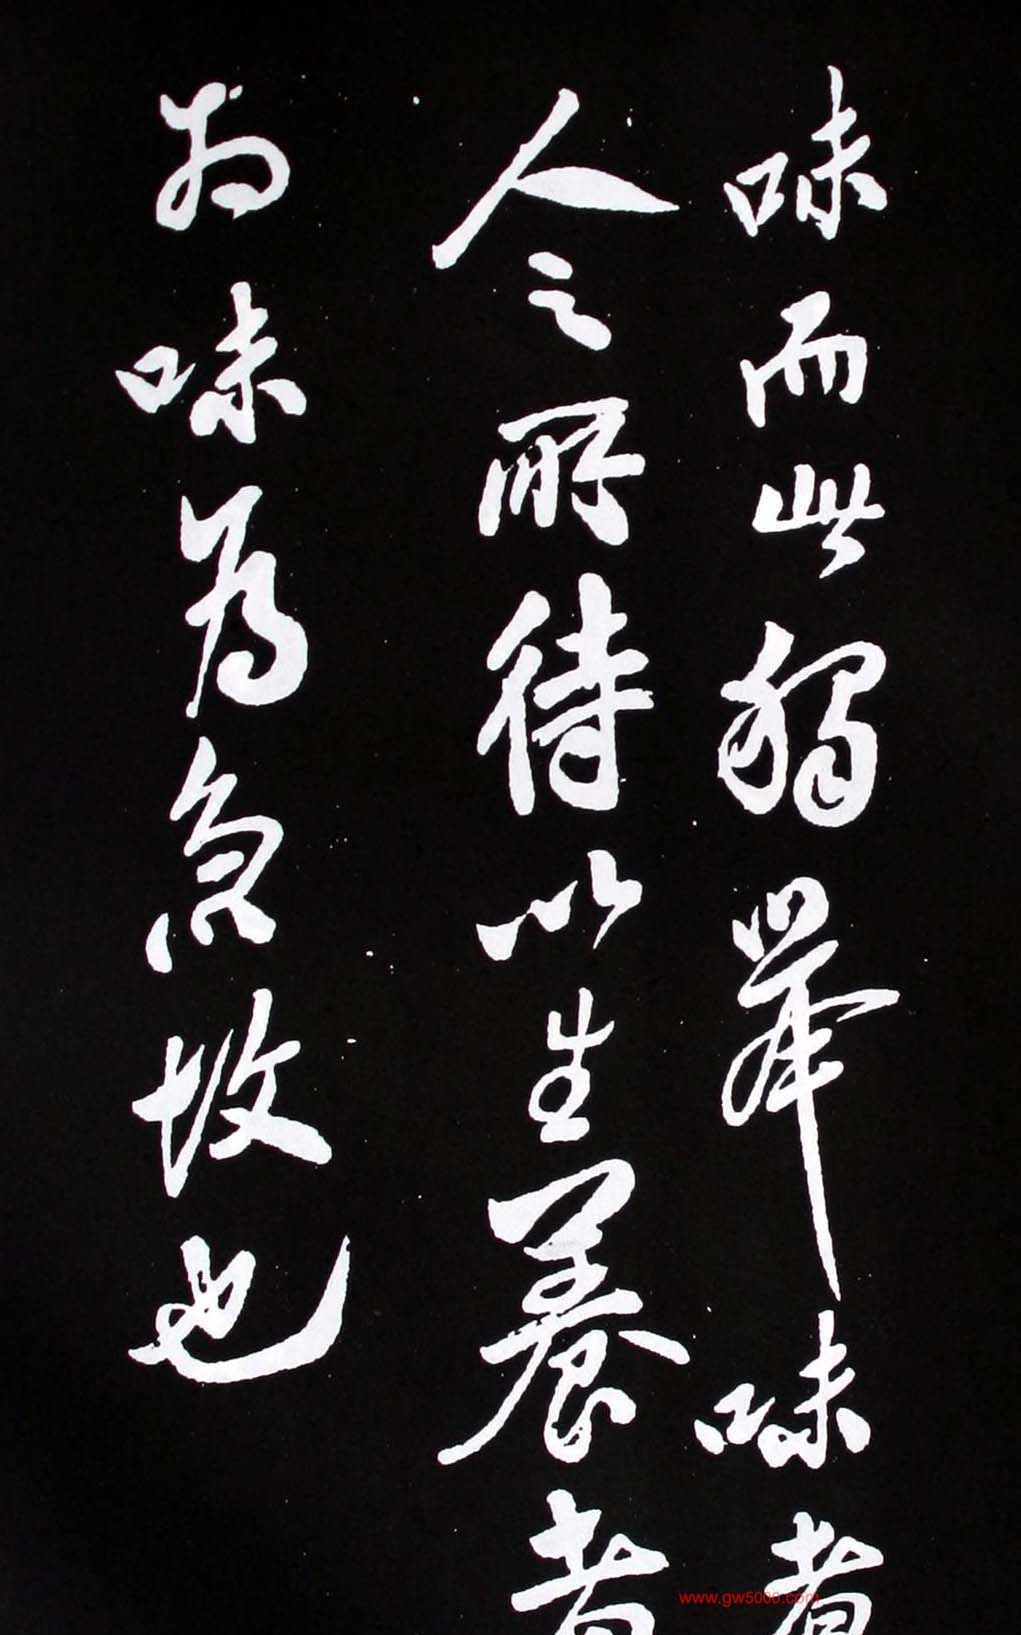 味而此独举味者
人之所待以生养者
为味为急故也
www.gw5000.com